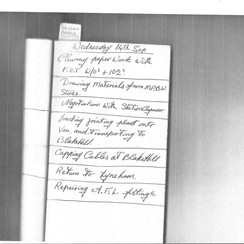 Wednesday 14th Sep
Clearing paper work with
Drawing Materials from MPBW
Stores.
Negotiation with Station Engineer
Loading jointing plant onto
Van and transporting to
Blakehill
Capping Cables at Blakehill
Return to Lyneham.
Repairing A.F.L. fittings